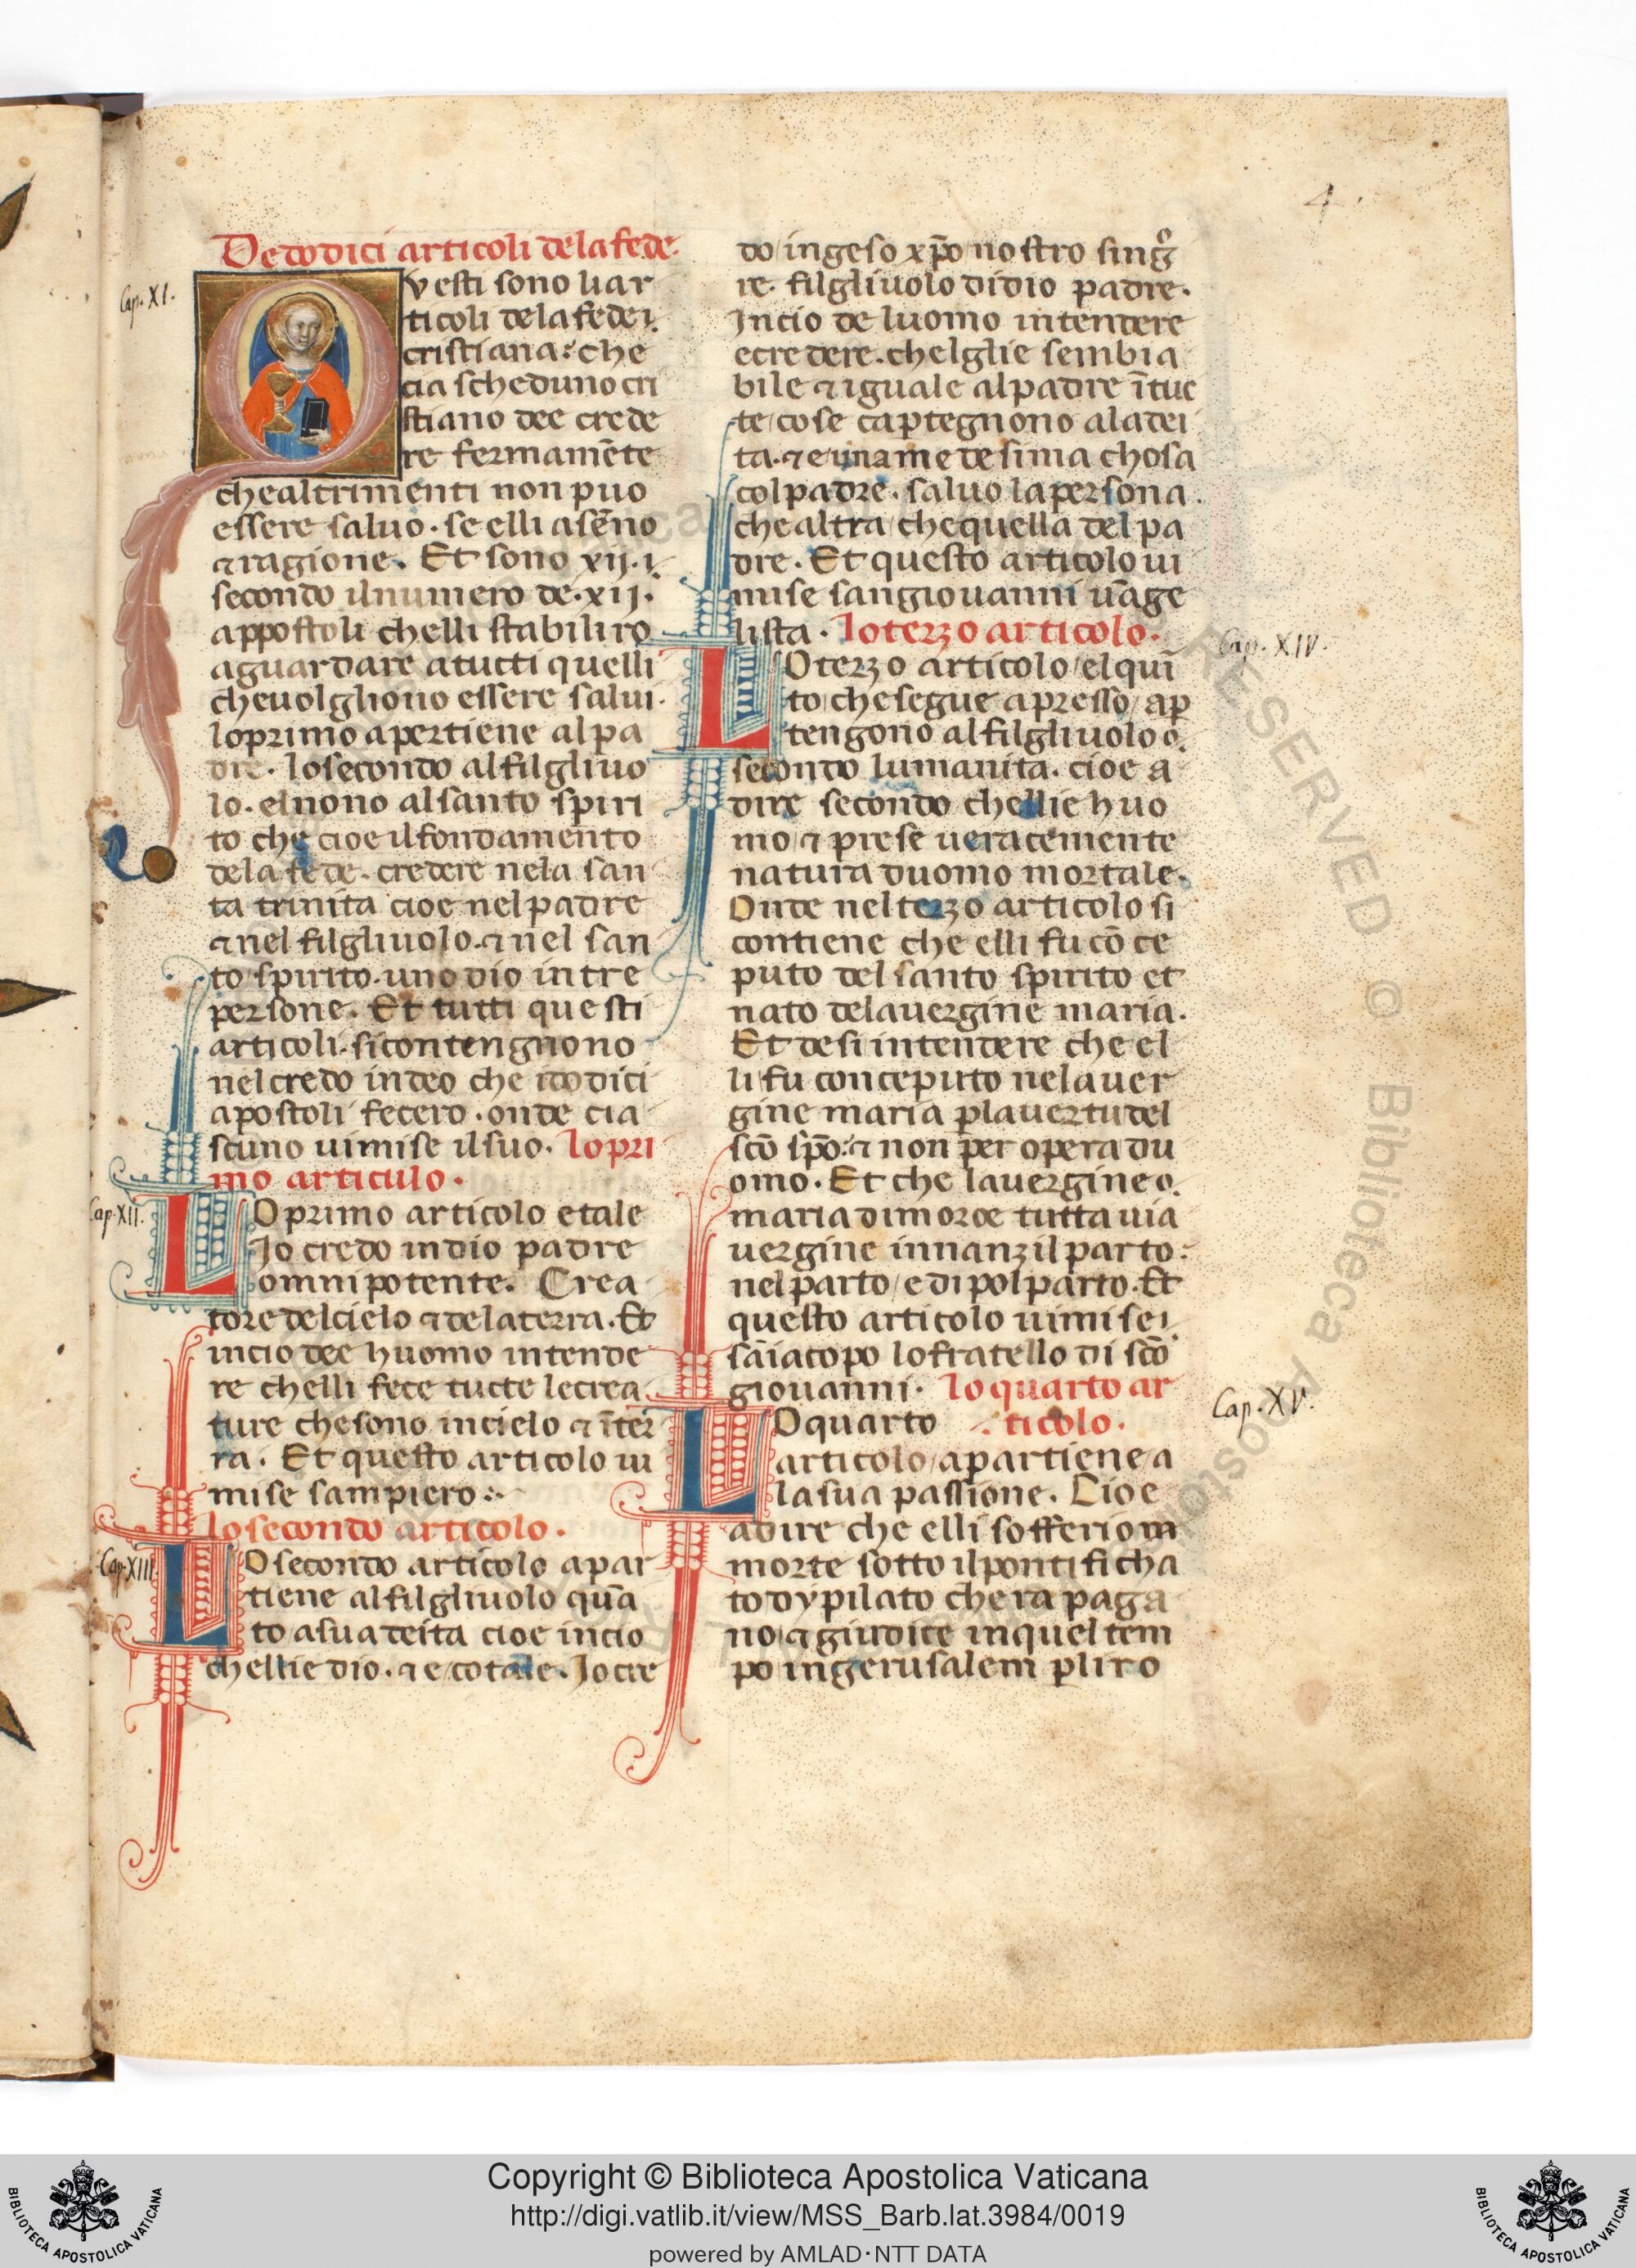 4.
De dodici articoli dela fede.
Cap. XI.
Questi sono li ar
ticoli dela fede
cristiana: che
cia scheduno cri
stiano dee crede
re fermamēte
che altrimenti non puo
essere saluo. se elli a sēno
⁊ ragione. Et sono xij.
secondo il numero de. xij.
appostoli chelli stabiliro
a guardare a tutti quelli
che uolgliono essere salui.
lo primo apertiene al pa
dre. lo secondo al filgliuo
lo. el nono al santo spiri
to che cioe il fondamento
dela fede. credere nela san
ta trinita cioe nel padre
⁊ nel filgliuolo. ⁊ nel san
to spirito. uno dio in tre
persone. Et tutti questi
articoli. si contengnono
nel credo in deo che i dodici
apostoli fecero. onde cia
scuno ui mise il suo. lo pri
mo articulo.
Cap. XII.
LO primo articolo e tale
Io credo in dio padre
omnipotente. Crea
tore del cielo ⁊ dela terra. Et
in cio dee huomo intende
re chelli fece tucte le crea
ture che sono in cielo ⁊ ī ter
ra. Et questo articolo ui
mise sampiero
lo secondo articolo.
Cap. XIII.
LO secondo articolo apar
tiene al filgliuolo quā
to a sua deita cioe in cio
chellie dio. ⁊ e cotale. Io cre
do in geso xp̄o nostro singo
re. filgliuolo di dio padre.
In cio de luomo intendere
e credere. chelglie sembia
bile ⁊ iguale al padre ī tuc
te cose ca ꝑtegnono ala dei
ta. ⁊ e una medesima chosa
col padre. saluo la persona.
che altra che quella del pa
dre. Et questo articolo ui
mise san giouanni uāge
lista. lo terzo articolo.
Cap. XIV.
LO terzo articolo el quī
to che segue apresso aꝑ
tengono al filgliuolo
secondo lumanita. cioe a
dire secondo chellie huo
mo ⁊ prese ueracemente
natura duomo mortale.
Onde nel terzo articolo si
contiene che elli fu cō ce
puto del santo spirito et
nato dela uergine maria.
Et de si intendere che el
li fu conceputo nela uer
gine maria ꝑ la uertu del
sc̄o sp̄o: ⁊ non per opera du
omo. Et che la uergine
maria dimoroe tutta uia
uergine innanzi il parto:
nel parto e di pol parto. Et
questo articolo ui mise
sā iacopo lo fratello di sc̄o
giouanni. lo quarto ar
ticolo.
Cap. XV.
LO quarto
articolo apartiene a
la sua passione. Cioe
adire che elli sofferio in
morte sotto il pontificha
to dy pilato chera paga
no ⁊ giudice in quel tem
po in gerusalem ꝑ li ro
RESERVED © Biblioteca Apostolica
Copyright © Biblioteca Apostolica Vaticana
http://digi.vatlib.it/view/MSS_Barb.lat.3984/0019
powered by AMLAD·NTT DATA
BIBLIOTECA APOSTOLICA VATICANA
BIBLIOTECA APOSTOLICA VATICANA